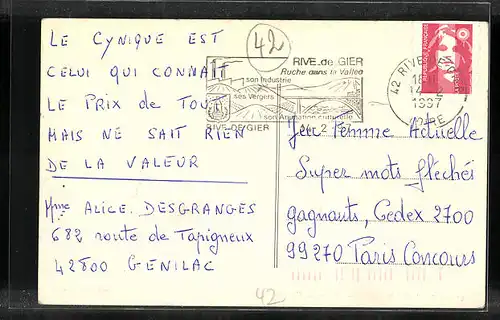 LE CYNIQUE EST
CELUI QUI CONNAIT
LE PRIX DE TOUT
MAIS NE SAIT RIEN
DE LA VALEUR
Mme ALICE DESGRANGES
682 route de Tapigneux
42800 GENILAC
42
RIVE de GIER
Ruche dans la Vallée
son Industrie
ses Vergers
son Animation culturelle
RIVE-DE-GIER
42 RIVE
18
14 - 2
1997
LOIRE
RÉPUBLIQUE FRANÇAISE
Jeu Femme Actuelle
n° 2
Super mots fléchés
gagnants, Cedex 2700
99270 Paris Concours
42